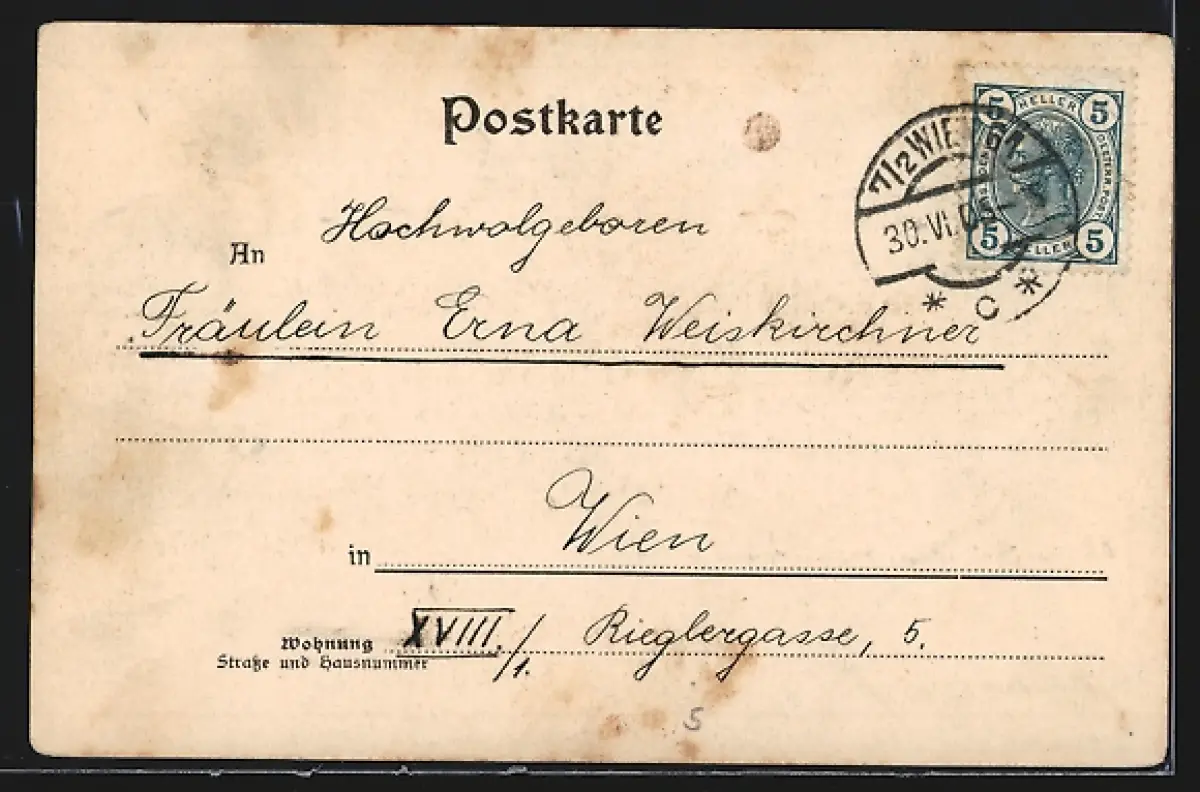 Postkarte
5 HELLER 5
5 HELLER 5
7/2 WIEN
30.VI.0
* C *
An Hochwolgeboren
Fräulein Erna Weiskirchner
in Wien
Wohnung XVIII./1. Rieglergasse, 5.
Straße und Hausnummer
5